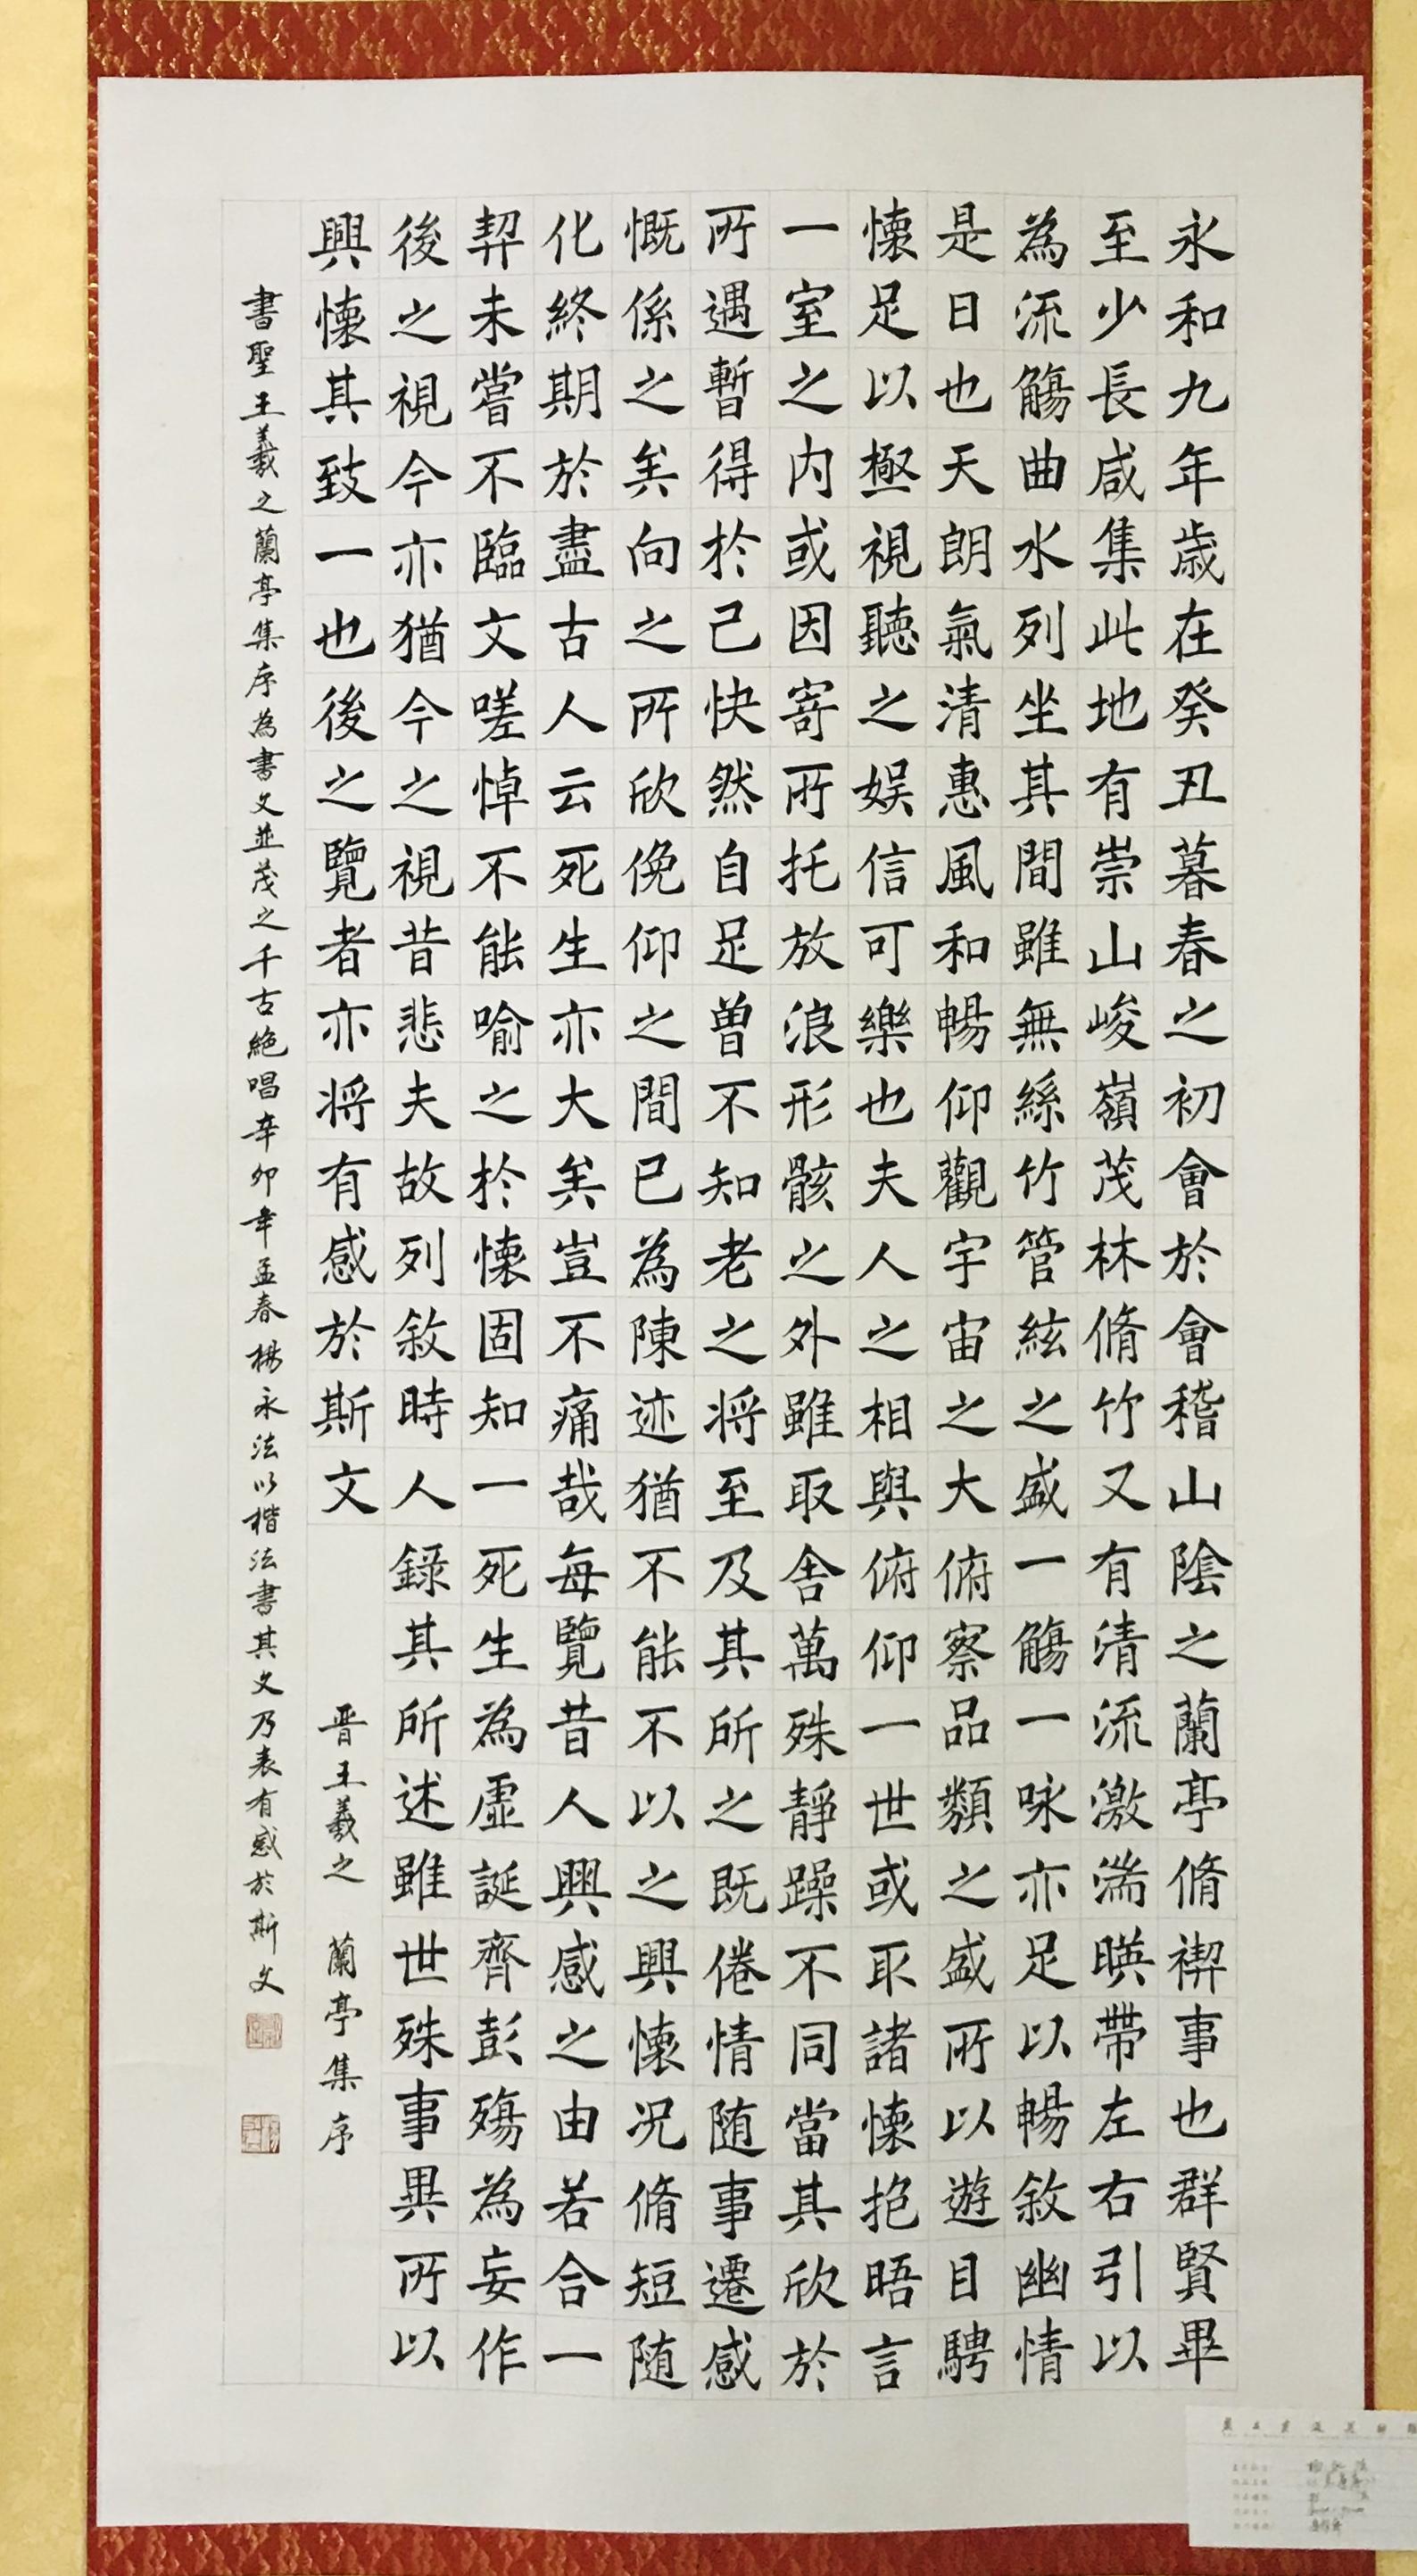 永和九年歲在癸丑暮春之初會於會稽山陰之蘭亭脩禊事也群賢畢
至少長咸集此地有崇山峻嶺茂林脩竹又有清流激湍暎帶左右引以
為流觴曲水列坐其間雖無絲竹管絃之盛一觴一咏亦足以暢敘幽情
是日也天朗氣清惠風和暢仰觀宇宙之大俯察品類之盛所以遊目騁
懷足以極視聽之娛信可樂也夫人之相與俯仰一世或取諸懷抱晤言
一室之內或因寄所托放浪形骸之外雖取舍萬殊靜躁不同當其欣於
所遇暫得於己快然自足曾不知老之將至及其所之既倦情随事遷感
慨係之矣向之所欣俛仰之間已為陳迹猶不能不以之興懷况脩短随
化終期於盡古人云死生亦大矣豈不痛哉每覽昔人興感之由若合一
契未嘗不臨文嗟悼不能喻之於懷固知一死生為虛誕齊彭殤為妄作
後之視今亦猶今之視昔悲夫故列敘時人錄其所述雖世殊事異所以
興懷其致一也後之覽者亦將有感於斯文
晋王羲之 蘭亭集序
書聖王羲之蘭亭集序為書文並茂之千古絕唱辛卯年孟春楊永法以楷法書其文乃表有感於斯文